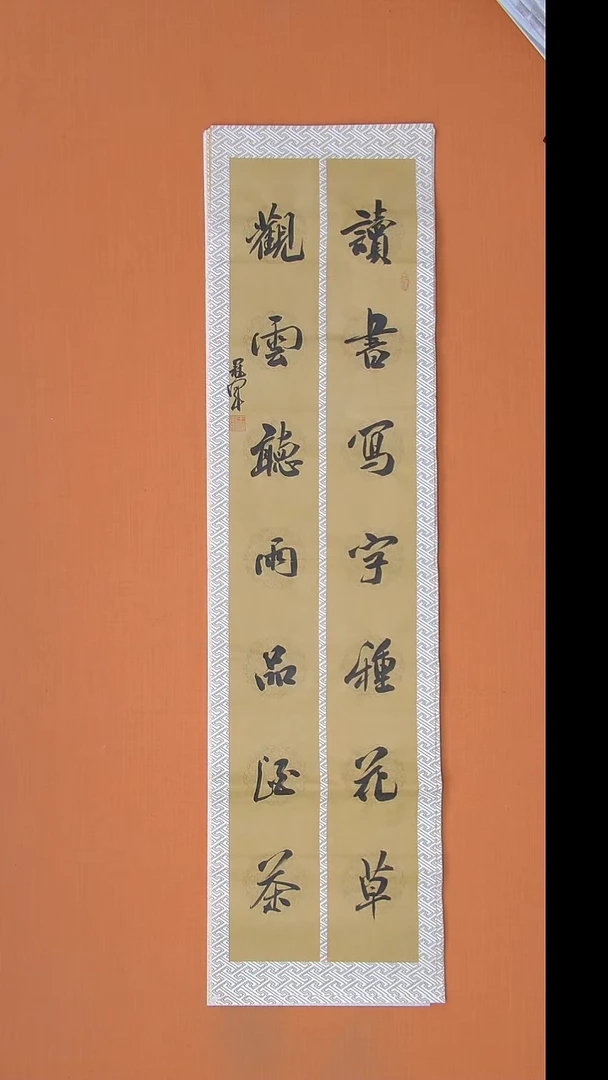 讀書写字種花草
觀雲聽雨品酒茶